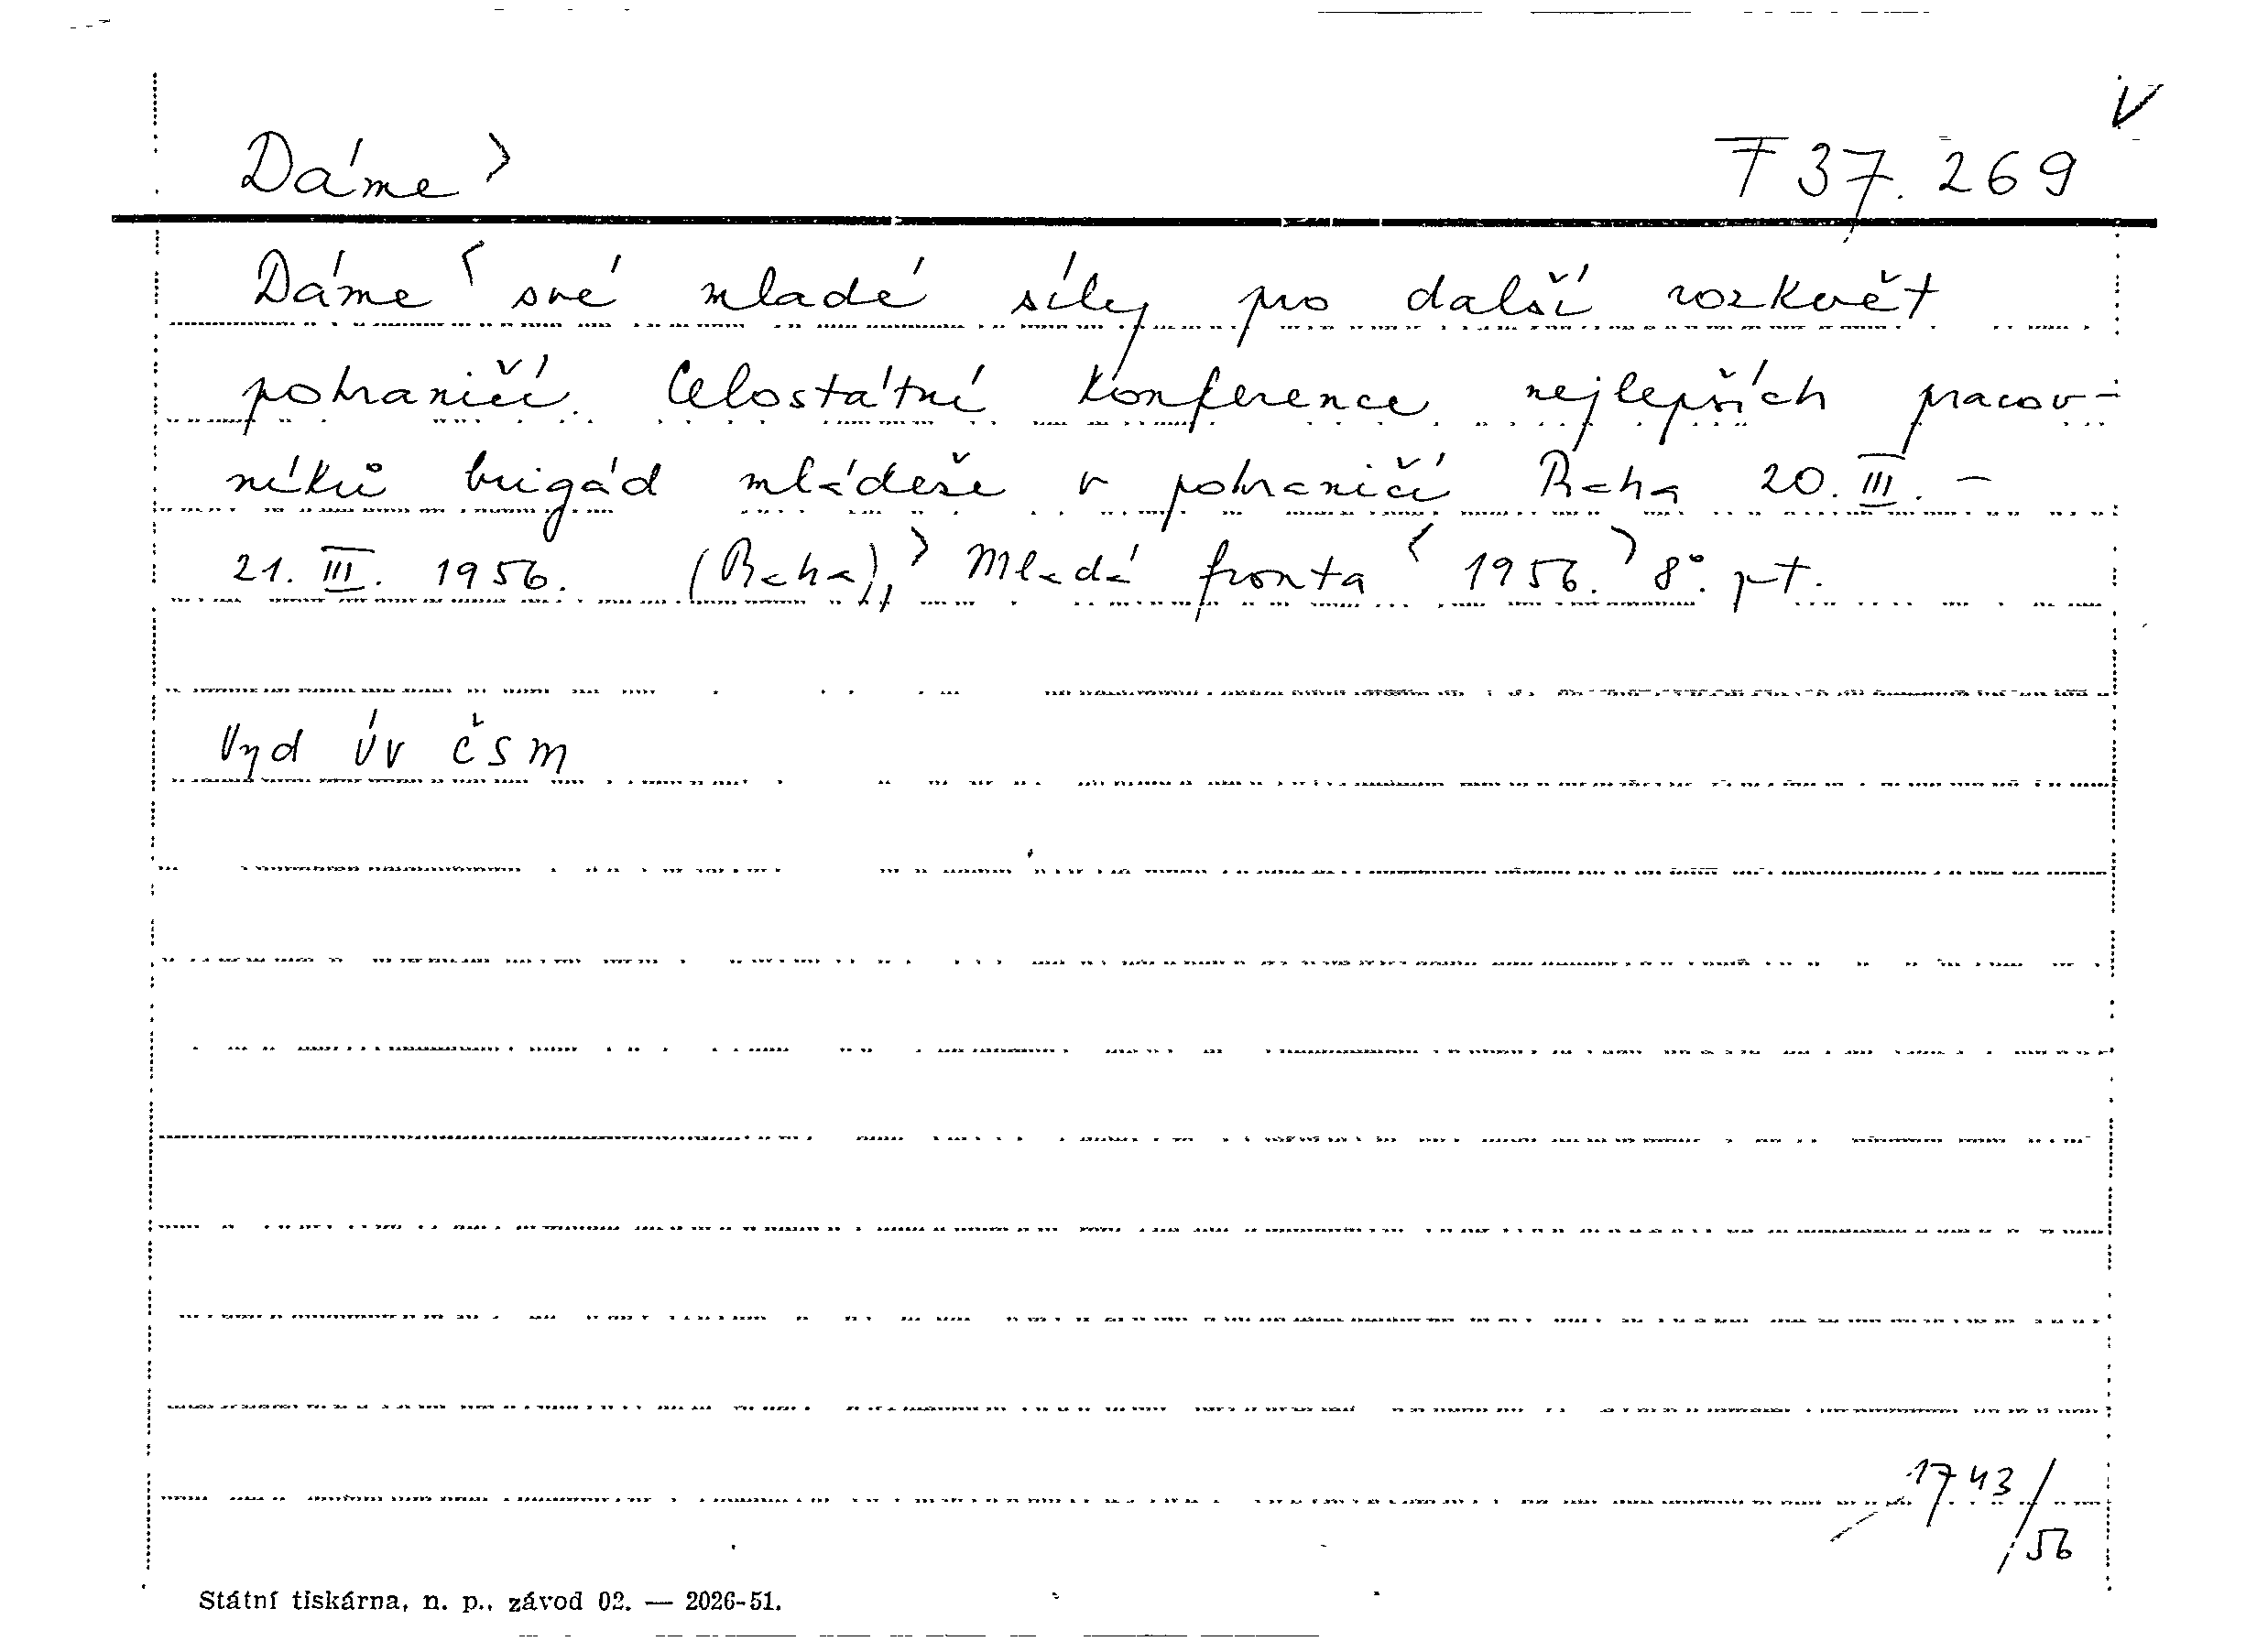 V
Dáme > F 37.269
Dáme < své mladé síly pro další rozkvět
pohraničí. Celostátní konference nejlepších pracov-
níků brigád mládeže v pohraničí Praha 20. III. -
21. III. 1956. (Praha), > Mladá fronta < 1956. > 8°. pt.
Vyd ÚV ČSM
1743/
/56
Státní tiskárna, n. p., závod 02. — 2026-51.